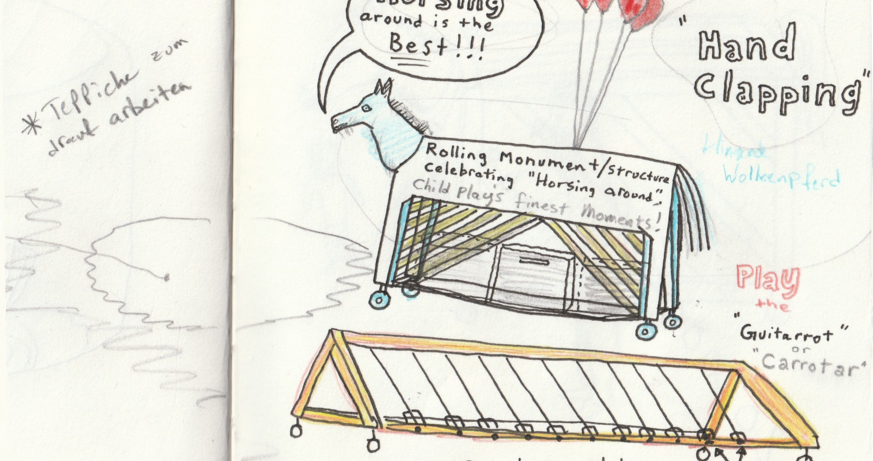 * Teppiche zum
drauf arbeiten
Horsing
around is the
Best!!!
"Hand
Clapping"
Rolling Monument/structure
celebrating "Horsing around",
Child Play's finest Moments!
Wolkenpferd
Play
the
"Guitarrot"
or
"Carrotar"